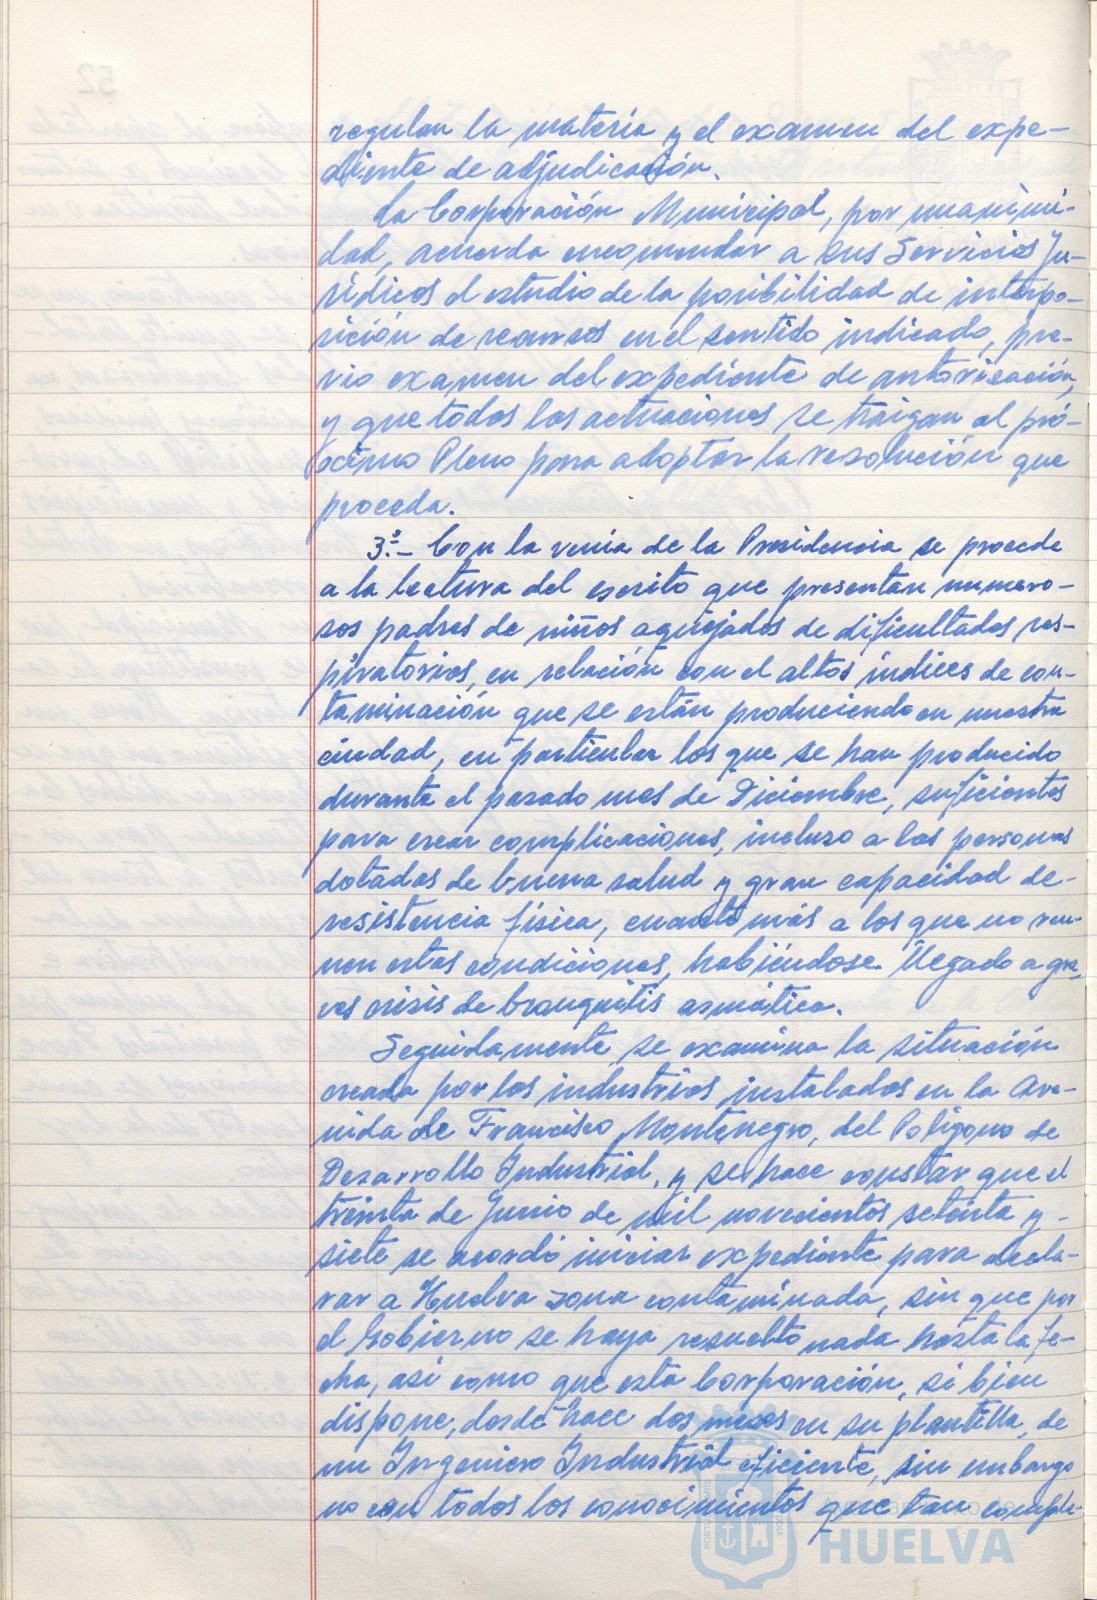 regulan la materia y el examen del expe-
diente de adjudicación.
La Corporación Municipal, por unanimi-
dad, acuerda encomendar a sus Servicios Ju-
rídicos el estudio de la posibilidad de interpo-
sición de recursos en el sentido indicado, pre-
vio examen del expediente de autorización,
y que todas las actuaciones se traigan al pró-
ximo Pleno para adoptar la resolución que
proceda.
3º.- Con la venia de la Presidencia se procede
a la lectura del escrito que presentan numero-
sos padres de niños aquejados de dificultades res-
piratorias, en relación con el altos índices de con-
taminación que se están produciendo en nuestra
ciudad, en particular los que se han producido
durante el pasado mes de Diciembre, suficientes
para crear complicaciones, incluso a las personas
dotadas de buena salud y gran capacidad de-
resistencia física, cuanto más a los que no reu-
nen estas condiciones, habiéndose llegado a gra-
ves crisis de bronquitis asmática.
Seguidamente, se examina la situación
creada por las industrias instaladas en la Ave-
nida de Francisco Montenegro, del Polígono de
Desarrollo Industrial, y se hace constar que el
treinta de Junio de mil novecientos setenta y -
siete se acordó iniciar expediente para decla-
rar a Huelva zona contaminada, sin que por
el Gobierno se haya resuelto nada hasta la fe-
cha, así como que esta Corporación, si bien
dispone, desde hace dos meses en su plantilla, de
un Ingeniero Industrial eficiente, sin embargo
no con todos los conocimientos que tan comple-
HUELVA